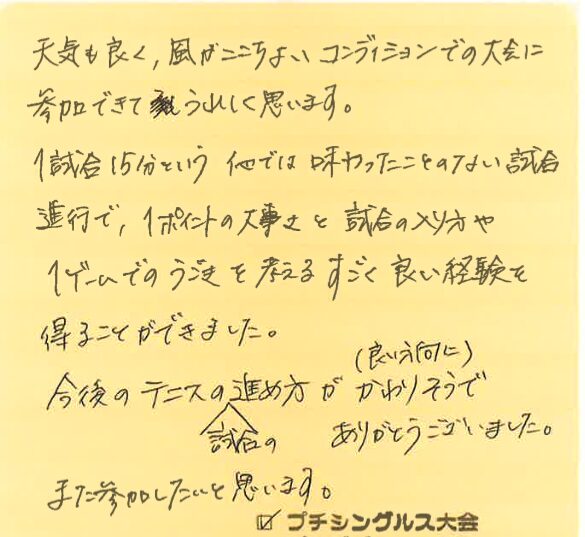 天気も良く,風がここちよいコンディションでの大会に
参加できてうれしく思います。
1試合15分という 他では 味わったことのない試合
進行で,1ポイントの大事さと 試合の入り方や
1ゲームでのうごきを考えるすごく良い経験を
得ることができました。
(良い方向に)
今後のテニスの進め方が かわりそうで
試合の
ありがとうございました。
また参加したいと思います。
☑ プチシングルス大会